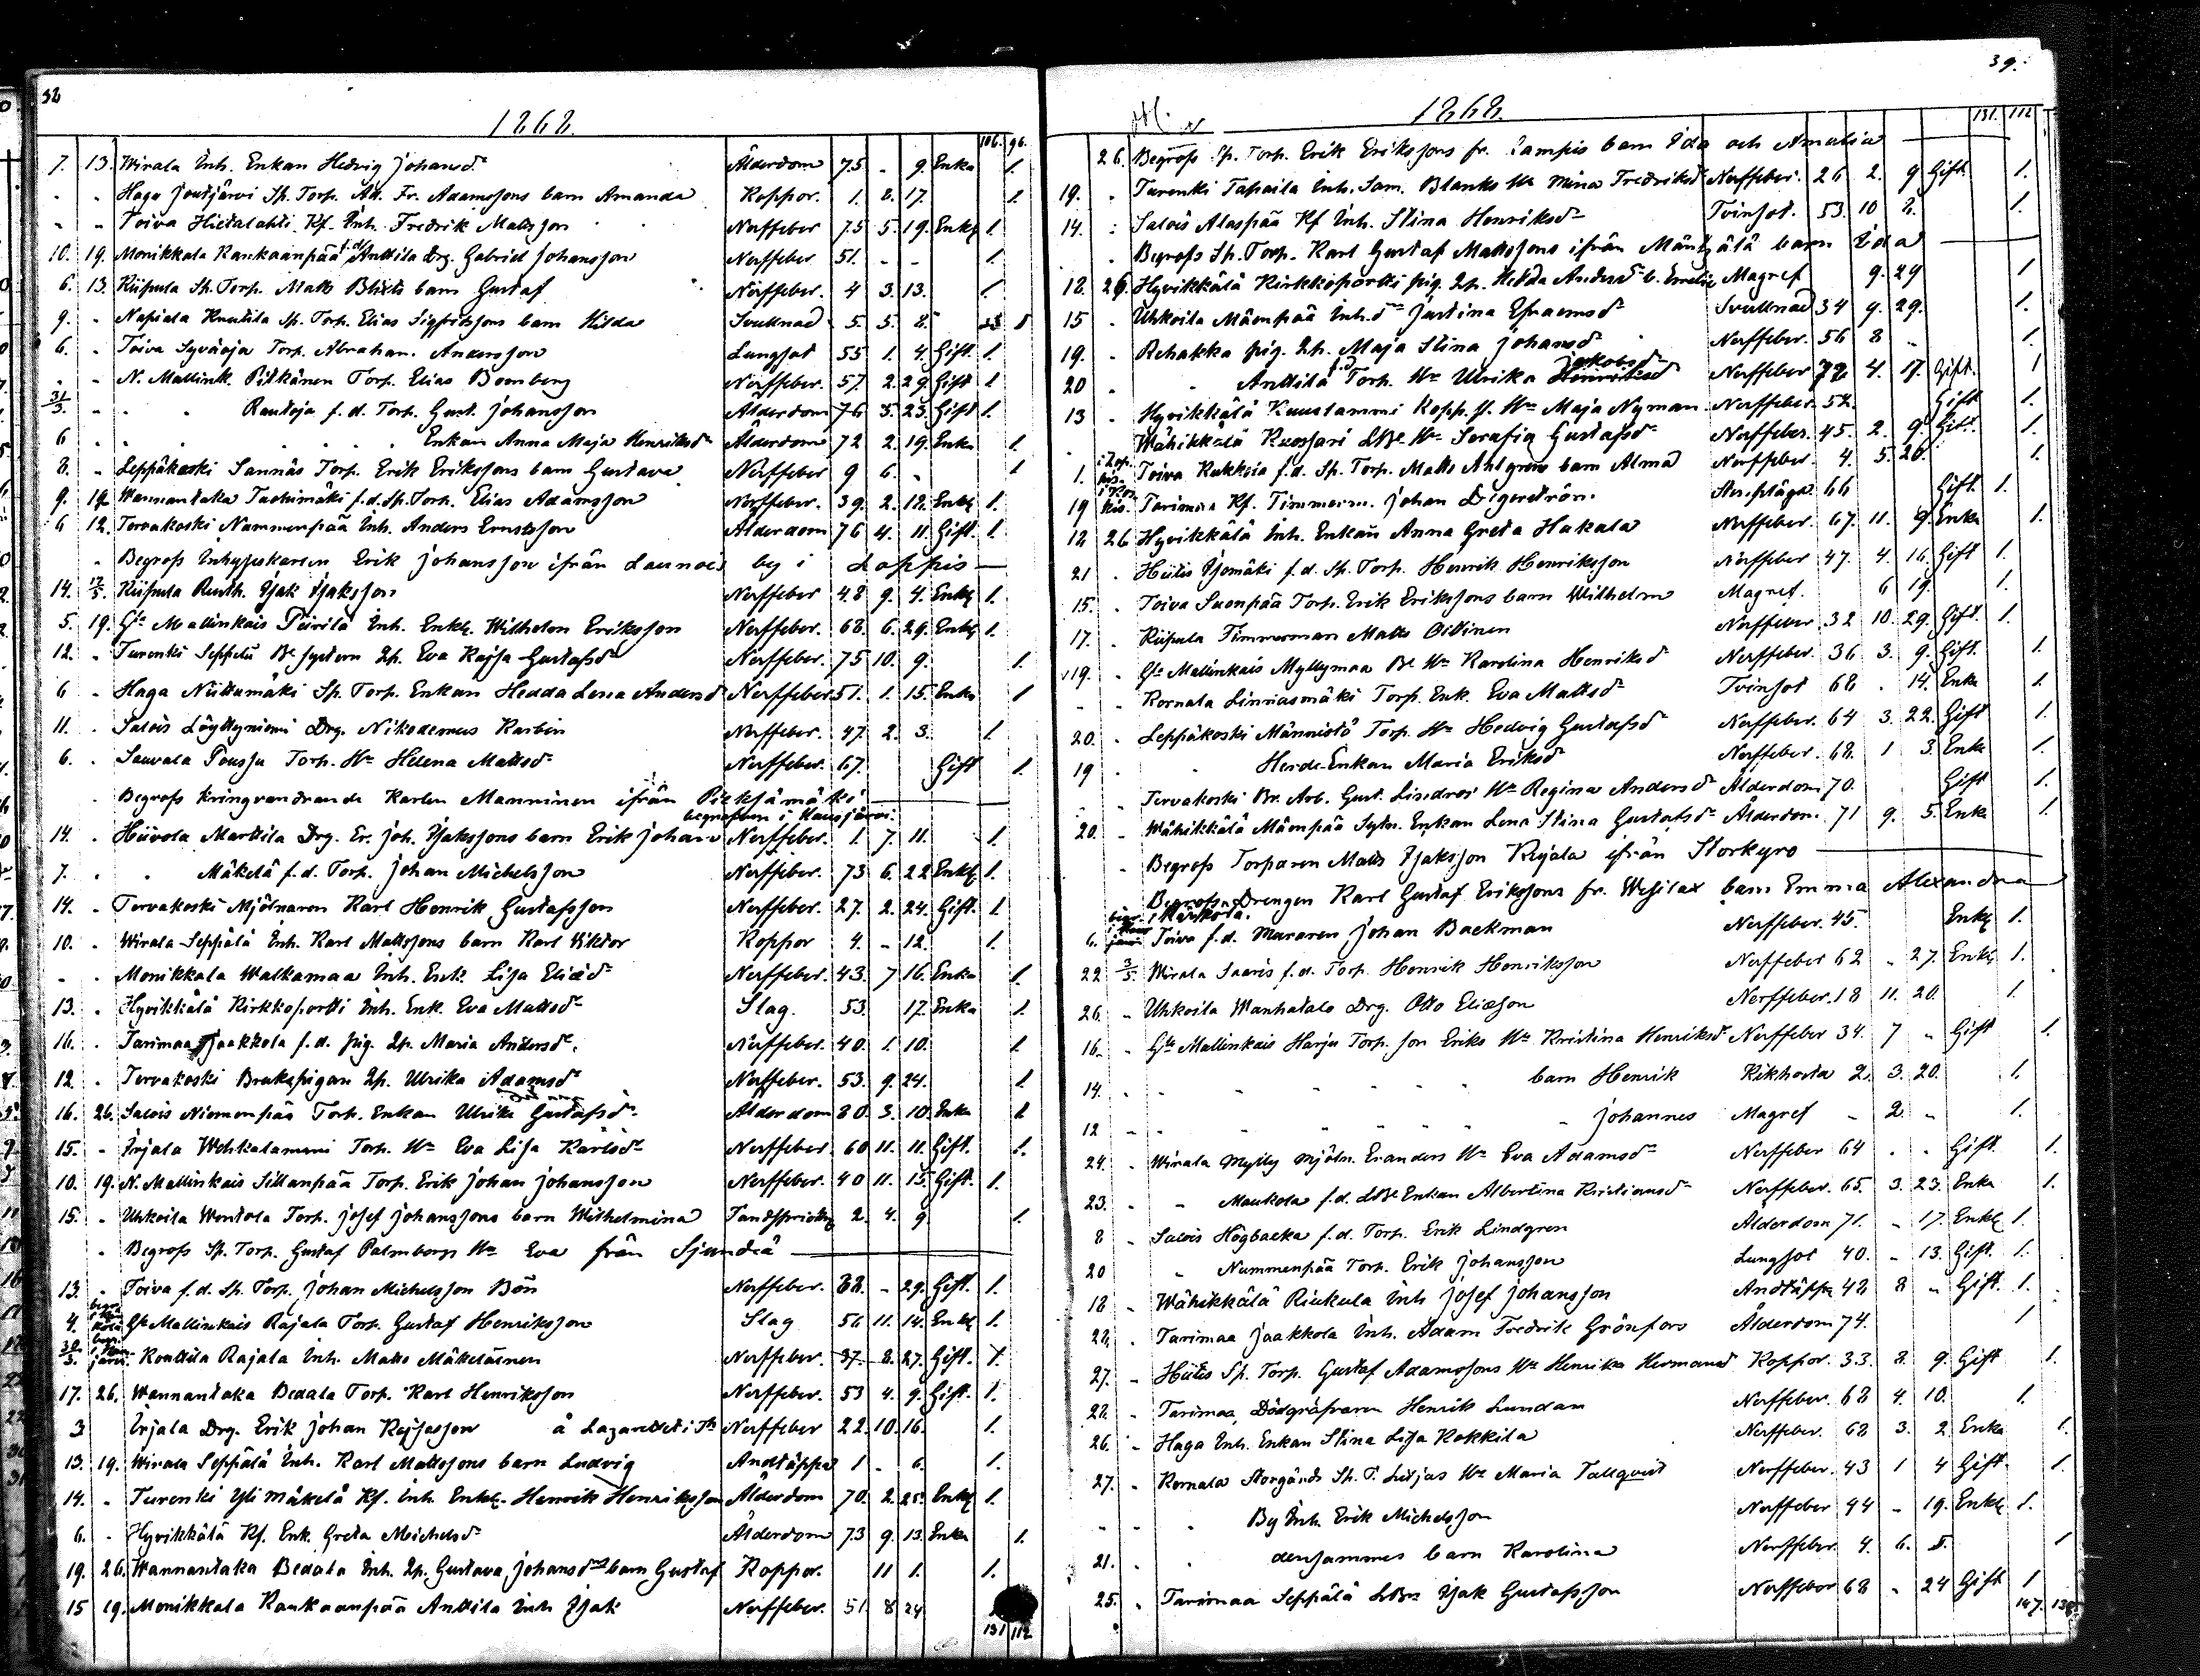 38
1868
106. 96.
7. 13. Wirala Inh. Enkan Hedvig Johansdr Ålderdom 75 - 9. Enka 1.
" " Haga Joutjärvi Sp. Torp. Ad. Fr. Adamssons barn Amanda Koppor. 1. 8. 17. 1.
" " Toiva Hietalahti Kf. Inh. Fredrik Mattsson Nerffeber 75 5. 19. Enkl 1.
10. 19. Monikkala Kankaanpää f.d. Anttila Drg. Gabriel Johansson Nerffeber 51. - - 1.
6. 13. Kiipula Sp. Torp. Matts Blixts barn Gustaf Nerffeber. 4 3. 13. 1.
9. " Napiala Knuutila Sp. Torp. Elias Sigfridssons barn Hilda Svullnad 5. 5. 8.
6. " Toiva Syväoja Torp. Abraham Andersson Lungsot 55 1. 4. Gift. 1.
" " N. Mallink. Pitkänen Torp. Elias Bomberg Nerffeber. 57. 2. 29. Gift 1
31/3. " " Rantoja f.d. Torp. Gust. Johansson Ålderdom 76 3. 23. Gift 1.
6 " " Enkan Anna Maja Henriksdr Ålderdom 72 2. 19. Enka 1.
8. " Leppäkoski Sannäs Torp. Erik Erikssons barn Gustava Nerffeber 9 6. - 1
9. 12 Wannantaka Tastumäki f.d. Sp. Torp. Elias Adamsson Nerffeber. 39. 2. 12. Enkl 1.
6 12. Tervakoski Nummenpää Inh. Anders Ernstsson Ålderdom 76 4. 11. Gift. 1.
" Begrofs Inhyseskarlen Erik Johansson ifrån Launois by i Loppis
14. 12/5. Kiipula Rusth. Isak Isaksson Nerffeber 48 9. 4. Enkl 1.
5. 19. Gl. Mallinkais Piirilä Inh. Enkl. Wilhelm Eriksson Nerffeber. 68. 6. 29. Enkl 1.
12. " Turenki Seppälä Bs system Qp. Eva Kajsa Gustafsdr Nerffeber. 75 10. 9. 1.
6 " Haga Niittumäki Sp. Torp. Enkan Hedda Lena Andersdr Nerffeber. 51. 1. 15. Enka 1
11. " Salois Löyttyniemi Drg. Nikodemus Karbin Nerffeber. 47 2. 3. 1.
6. " Sauvala Pousu Torp. Hu Helena Mattsdr Nerffeber. 67. Gift 1.
" Begrofs kringvandrande Karlen Manninen ifrån Pieksämäki
begrafven i Hausjärvi.
14. " Hiivola Marttila Drg. Er. Joh. Isakssons barn Erik Johan Nerffeber. 1. 7. 11. 1.
7. " " Mäkelä f.d. Torp. Johan Michelsson Nerffeber. 73 6. 22 Enkl 1.
14. " Tervakoski Mjölnaren Karl Henrik Gustafsson Nerffeber. 27. 2. 24. Gift. 1.
10. " Wirala Seppälä Inh. Karl Mattssons barn Karl Viktor Koppor 4. - 12. 1.
" " Monikkala Walkamaa Inh. Enk. Lisa Eliædr Nerffeber. 43. 7 16. Enka 1.
13. " Hyvikkälä Kirkkoportti Inh. Enk. Eva Mattsdr Slag. 53. 17. Enka 1.
16. " Tarimaa Jaakkola f.d. pig. Qp. Maria Andersdr. Nerffeber. 40. 1. 10. 1.
12. " Tervakoski Brukspigan Qp. Ulrika Adamsdr Nerffeber. 53. 9. 24. 1
16. 26. Salois Niemenpää Torp. Enkan Ulrika Gustafsdr Ålderdom 80. 3. 10. Enka 1
15. " Irjala Wehkalammi Torp. Hu Eva Lisa Karlsdr Nerffeber. 60 11. 11. Gift. 1.
10. 19. N. Mallinkais Sillanpää Torp. Erik Johan Johansson Nerffeber. 40 11. 15. Gift. 1.
15. " Uhkoila Wentola Torp. Josef Johanssons barn Wilhelmina Tandspricktn 2. 4. 9 1.
" Begrofs Sp. Torp. Gustaf Palmborgs Hu Eva från Sjundeå
13. " Toiva f.d. Sp. Torp. Johan Michelsson Bön Nerffeber. 62. - 29. Gift. 1.
4. Gl. Mallinkais Rajala Torp. Gustaf Henriksson Slag 56 11. 14. Enkl 1.
30/3. Konttila Rajala Inh. Matts Mäkeläinen Nerffeber. 37. 8. 27. Gift. 1.
17. 26. Wannantaka Bedala Torp. Karl Henriksson Nerffeber. 53 4. 9. Gift. 1.
3 Irjala Drg. Erik Johan Kajsasson å Lazarettet i Th Nerffeber 22. 10. 16. 1.
13. 19. Wirala Seppälä Inh. Karl Mattssons barn Ludvig Andtäppa 1 - 6. 1.
14. " Turenki Yli Mäkelä Kf. Inh. Enkl. Henrik Henriksson Ålderdom 70. 2. 25. Enkl 1.
6. " Hyvikkälä Kf. Enk. Greta Michelsdr Ålderdom 73 9. 13. Enka 1.
19. 26. Wannantaka Bedala Inh. Qp. Gustava Johansdrs barn Gustaf Koppor. 11 1. 1.
15 19. Monikkala Kankaanpää Anttila Inh Isak Nerffeber. 51. 8 24
131 112
39.
1868.
131. 112
26. Begrofs Sp. Torp. Erik Erikssons fr. Lampis barn Ida och Amalia
19. " Turenki Tapaila Inh. Sam. Blanks Hu Mina Fredriksdr Nerffeber. 26 2. 9 Gift. 1.
14. " Salois Alaspää Kf Inh. Stina Henriksdr Tvinsot. 53. 10 2. 1.
" Begrofs Sp. Torp. Karl Gustaf Mattssons ifrån Mäntsälä barn Ida
18. 26. Hyvikkälä Kirkkoportti pig. Qp. Hedda Andersdr b. Emelie Magref 9. 29 1
15 " Uhkoila Mäenpää Inh.dr Justina Efraemsdr Svullnad 34 9. 29. 1.
19. " Rehakka pig. Qp. Maja Stina Johansdr Nerffeber. 56 8 " 1.
20 " " Anttila f.d. Torp. Hu Ulrika Jakobsdr Nerffeber 72 4. 17. Gift. 1
13 " Hyvikkälä Kuustammi Kopp. Hu Maja Nyman Nerffeber. 52. Gift 1.
" Wähikkälä Kuossari Hu Serafia Gustafsdr Nerffeber. 45. 2. 9. Gift. 1.
1. Toiva Kukkoia f.d. Sp. Torp. Matts Ahlgrens barn Alma Nerffeber. 4. 5. 20. 1.
19 Tarimaa Kf. Timmerm. Johan Degerström. Stenplåga 66 Gift. 1.
12 26 Hyvikkälä Inh. Enkan Anna Greta Hakala Nerffeber. 67. 11. 9. Enka 1.
21 " Hiitis Isomäki f.d. Sp. Torp. Henrik Henriksson Nerffeber 47. 4. 16. Gift 1.
15. " Toiva Suonpää Torp. Erik Erikssons barn Wilhelm Magref. 6 19. 1.
17. " Kiipula Timmerman Matts Oittinen Nerffeber 32 10. 29. Gift. 1.
19. " Gl. Mallinkais Myllymaa Bs Hu Karolina Henriksdr Nerffeber. 36 3. 9. Gift. 1.
" " Kornala Linniasmäki Torp. Enk. Eva Mattsdr Tvinsot 68 . 14. Enka 1.
20. " Leppäkoski Männistö Torp. Hu Hedvig Gustafsdr Nerffeber. 64 3. 22. Gift 1.
19 " " Herde-Enkan Maria Eriksdr Nerffeber. 68. 1 3. Enka 1.
" " Tervakoski Br. Arb. Gust. Lindros' Hu Regina Andersdr Ålderdom 70. Gift 1.
20. " Wähikkälä Mäenpää Sytn. Enkan Lena Stina Gustafsdr Ålderdom. 71 9. 5. Enka 1.
" Begrofs Torparen Matts Isaksson Kujala ifrån Storkyro
Begrofs Drengen Karl Gustaf Erikssons fr. Wesilax barn Emma Alexandra
6. Toiva f.d. Muraren Johan Backman Nerffeber. 45. Enkl 1.
22 3/5. Wirala Saaris f.d. Torp. Henrik Henriksson Nerffeber 62 " 27. Enkl 1.
26. " Uhkoila Wanhatalo Drg. Otto Eliæson Nerffeber. 18 11. 20. 1.
16. " Gl. Mallinkais Harju Torp. son Eriks Hu Kristina Henriksdr Nerffeber 34. 7 " Gift 1.
14. " " barn Henrik Kikhosta 2. 3. 20. 1.
12 " " Johannes Magref - 2. " 1.
24. " Wirala Mylly Mjöln. Eranders Hu Eva Adamsdr Nerffeber 64 . . Gift. 1.
23. " " Maukola f.d. Enkan Albertina Kristiansdr Nerffeber. 65. 3. 23. Enka 1.
8 " Salois Högbacka f.d. Torp. Erik Lindgren Ålderdom 71. " 17. Enkl 1.
20 " Nummenpää Torp. Erik Johansson Lungsot 40. " 13. Gift. 1.
18 " Wähikkälä Riukula Inh Josef Johansson Andtäppa 42 8 " Gift. 1.
28. " Tarimaa Jaakkola Inh. Adam Fredrik Grönfors Ålderdom 74. 1
27. " Hiitis Sp. Torp. Gustaf Adamssons Hu Henrika Hermansdr Koppor. 33. 8. 9. Gift 1.
28. " Tarimaa Dödgräfvaren Henrik Lundan Nerffeber. 68 4. 10. 1.
26. " Haga Inh. Enkan Stina Lisa Kokkila Nerffeber. 68 3. 2 Enka 1.
27. " Kornala Storgårds Sp. T. Hu Maria Tallqvist Nerffeber. 43 1 4 Gift. 1.
" " " By Inh. Erik Michelsson Nerffeber 44 " 19. Enkl 1.
21. " " densammes barn Karolina Nerffeber. 4. 6. 5. 1
25. " Tarimaa Seppälä Isak Gustafsson Nerffeber 68 " 24 Gift 1
147.